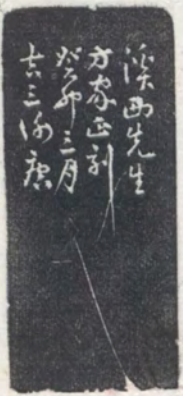 溪西先生
方家正刻
癸卯三月
吉三谢庚